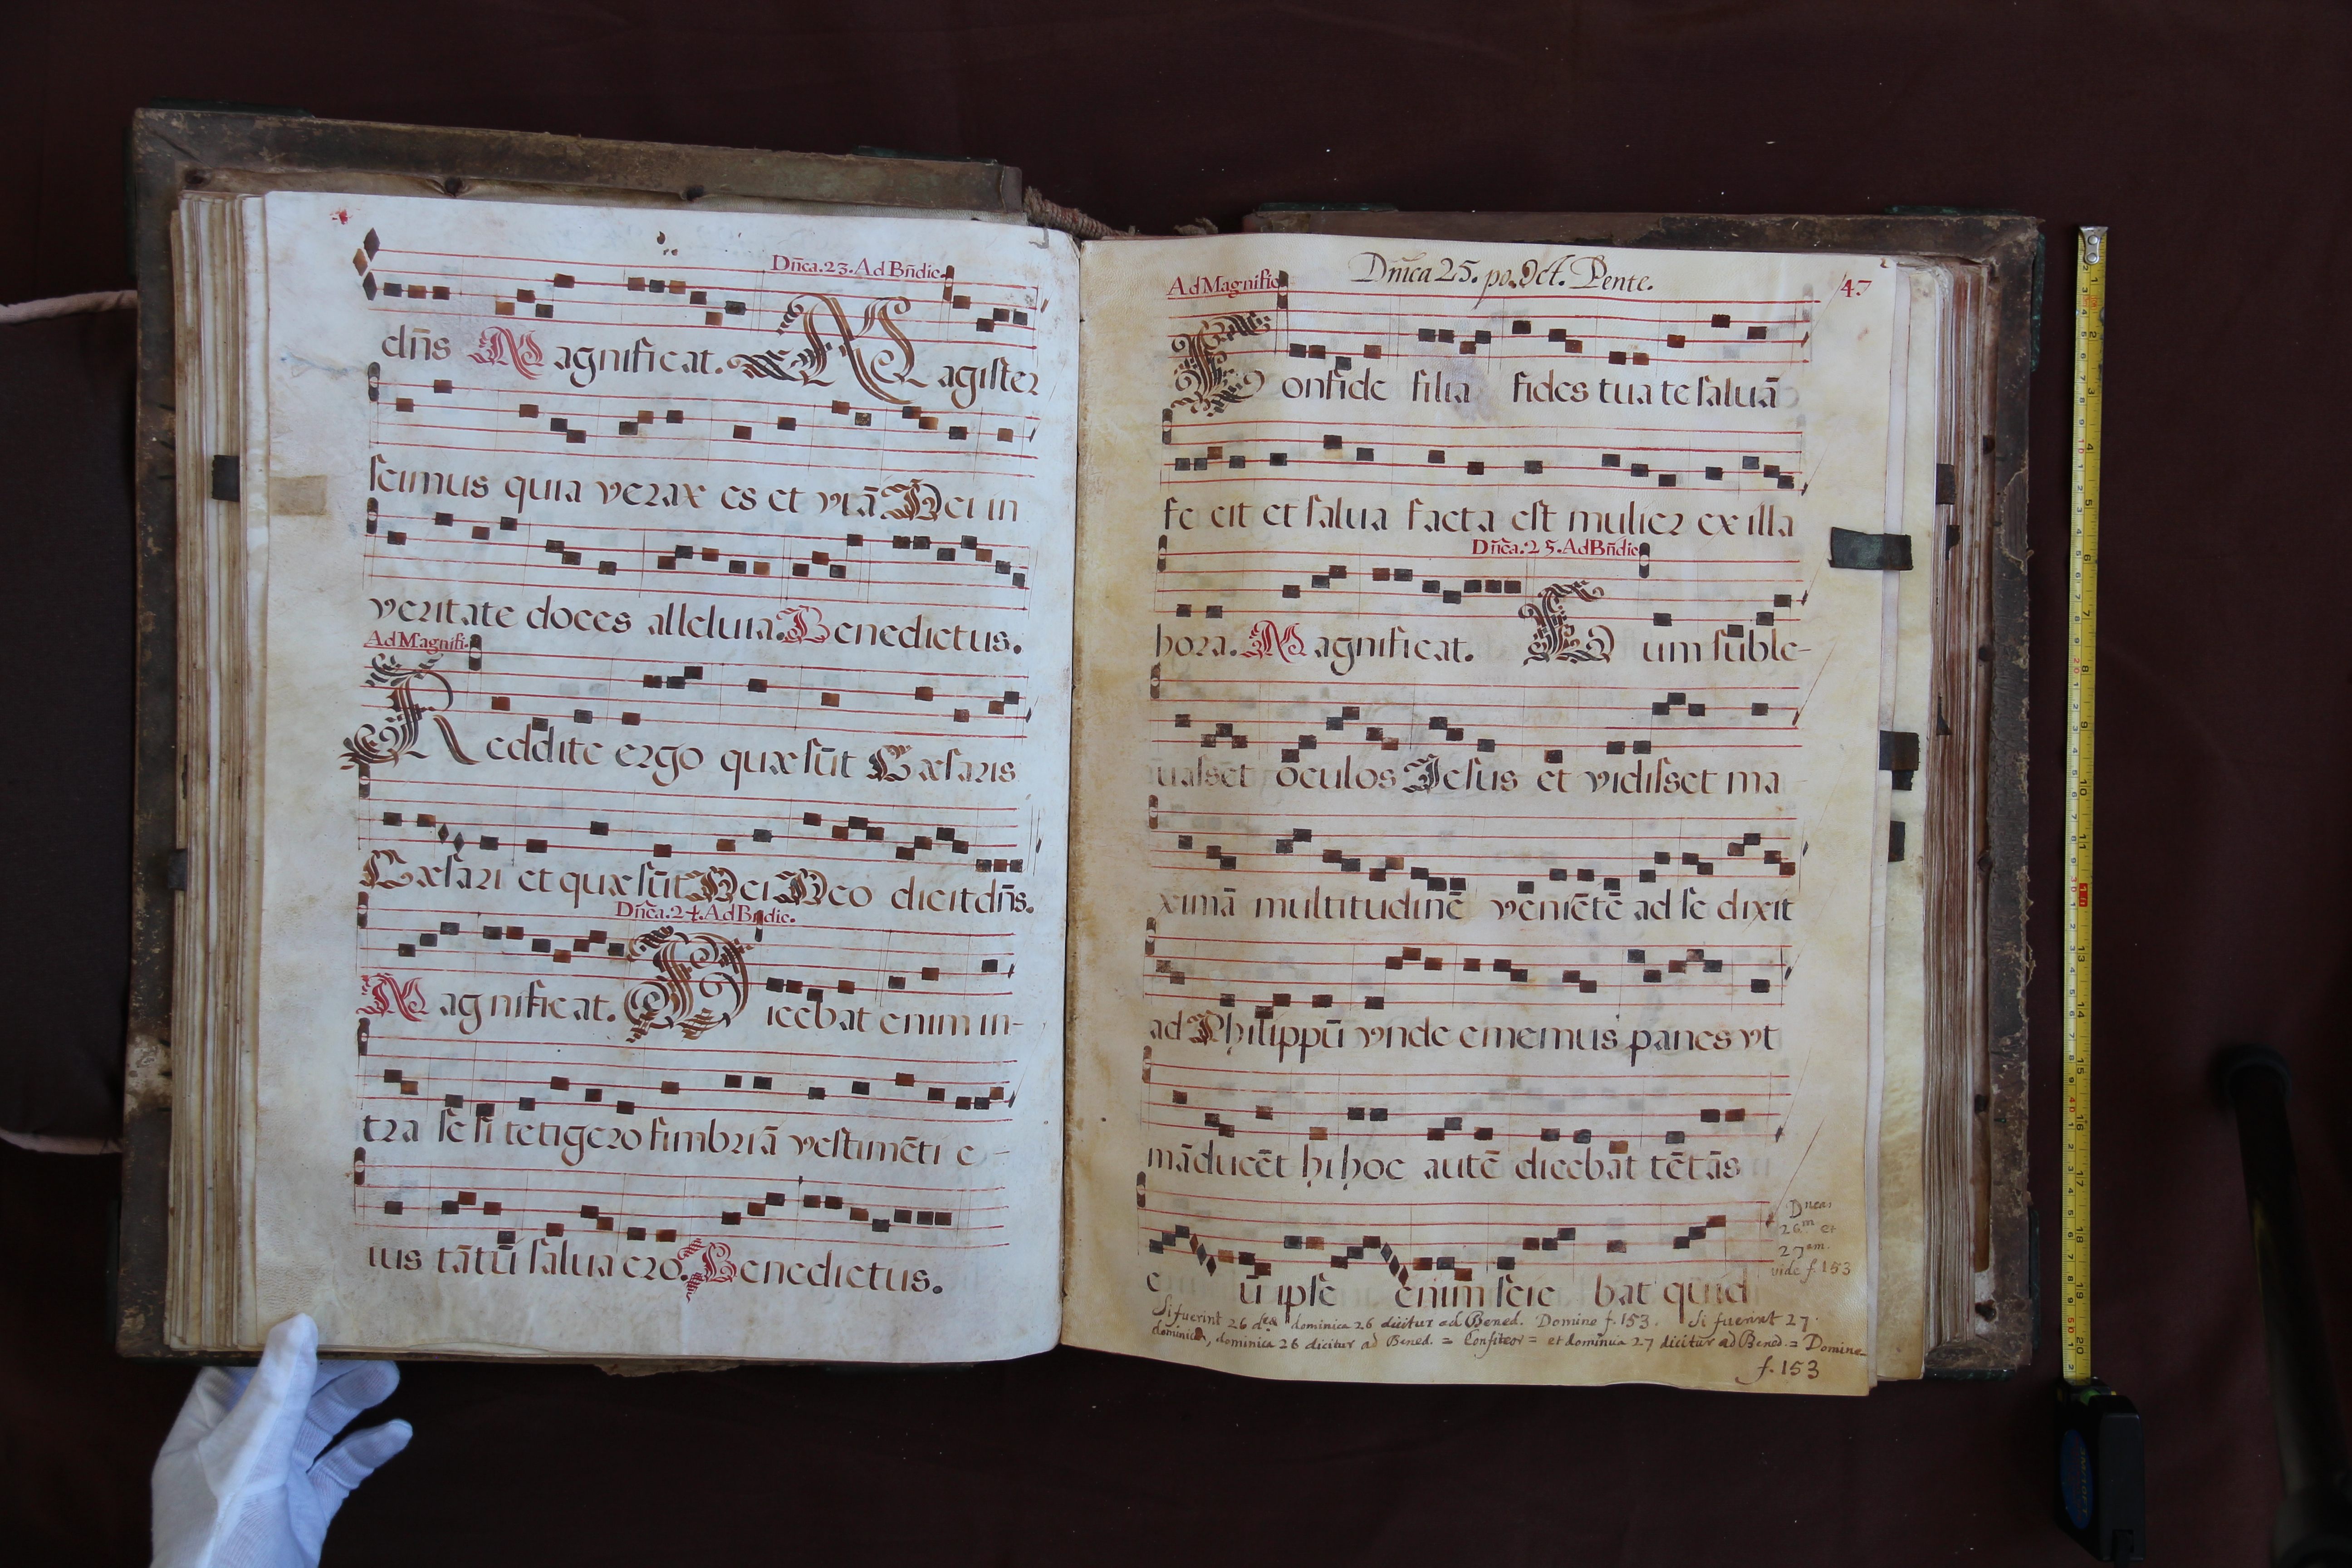 Dn̄ca.23.Ad Bn̄dic.
dn̄s Magnificat. Magister
scimus quia verax es et viā Dei in
veritate doces alleluia. Benedictus.
Ad Magnifi.
Reddite ergo quæ sūt Cæsaris
Cæsari et quæ sūt Dei Deo dicit dn̄s.
Dn̄ca.24.Ad Bn̄dic.
Magnificat. Dicebat enim in-
tra se si tetigero fimbriā vestimēti e-
ius tātū salua ero. Benedictus.
Dn̄ica 25. po. Oct. Pente.
Ad Magnific
47
Confide filia fides tua te saluā
fecit et salua facta est mulier ex illa
Dn̄ca.25.Ad Bn̄dic
hora. Magnificat. Cum suble-
uasset oculos Jesus et vidisset ma
ximā multitudinē veniētē ad se dixit
ad Philippū vnde ememus panes vt
māducēt hi hoc autē dicebat tētās
Dncas
26m et
27am
vide f. 153
eū ipse enim scie bat quid
Si fuerint 26 dcæ dominica 26 dicitur ad Bened. Domine f. 153. Si fuerint 27
dominica, dominica 26 dicitur ad Bened. = Confiteor = et dominica 27 dicitur ad Bened. = Domine
f. 153